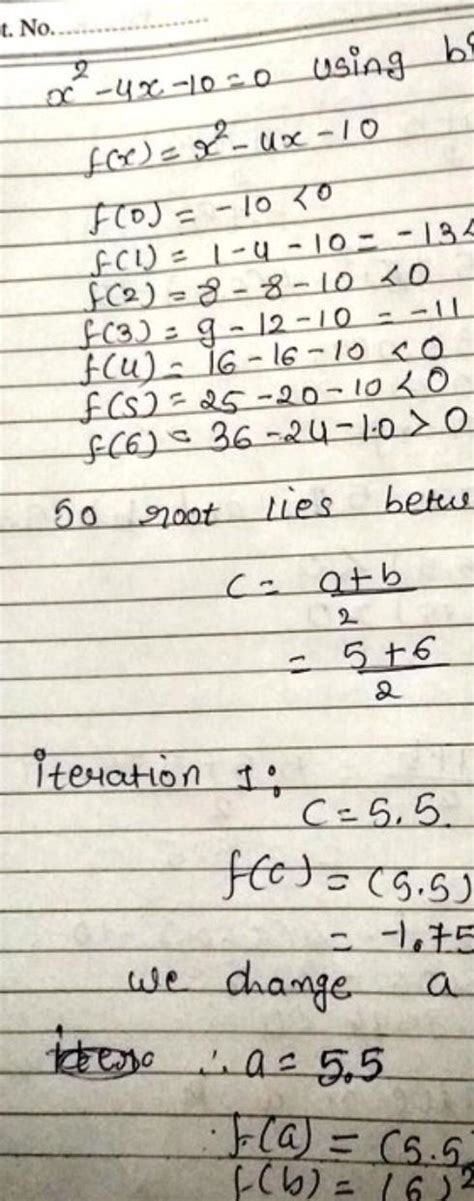 t. No...............................
x² - 4x - 10 = 0 using
f(x) = x² - 4x - 10
f(0) = -10 < 0
f(1) = 1 - 4 - 10 = -13 <
f(2) = 8 - 8 - 10 < 0
f(3) = 9 - 12 - 10 = -11
f(4) = 16 - 16 - 10 < 0
f(5) = 25 - 20 - 10 < 0
f(6) = 36 - 24 - 10 > 0
so root lies
c = a+b / 2
= 5+6 / 2
iteration 1:
c = 5.5.
f(c) = (5.5)
= -1.75
we change a
∴ a = 5.5
f(a) = (5.5
f(b) = (6)²